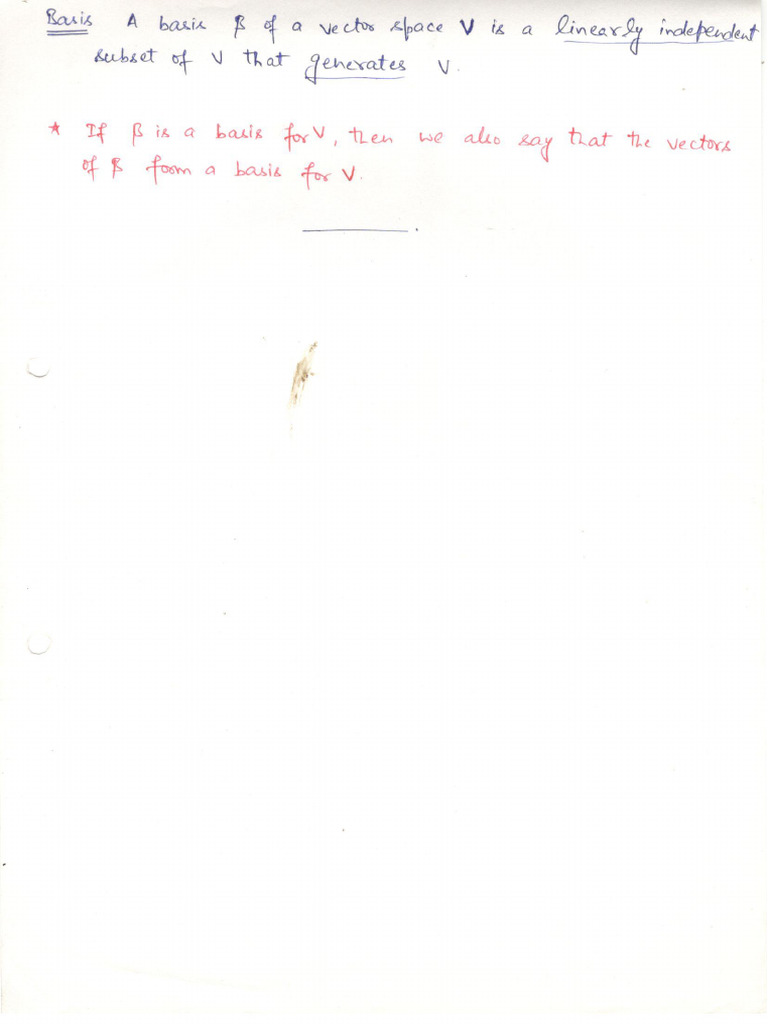 Basis A basis β of a vector space V is a linearly independent
subset of V that generates V.
* If β is a basis for V, then we also say that the vectors
of β form a basis for V.